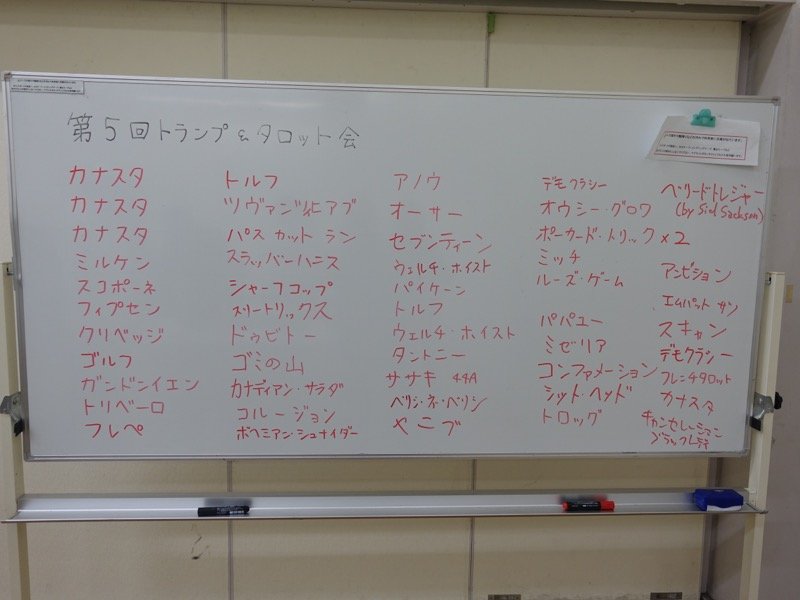 第5回トランプ&タロット会
カナスタ
カナスタ
カナスタ
ミルケン
スコポーネ
フィプセン
クリベッジ
ゴルフ
ガンドンイエン
トリベーロ
フレペ
トルフ
ツヴァンツィヒアプ
パス カット ラン
スラッバーハニス
シャーフコップ
スリートリックス
ドゥビトー
ゴミの山
カナディアン・サラダ
コルージョン
ボヘミアン・シュナイダー
アノウ
オーサー
セブンティーン
ウェルチ・ホイスト
パイケーン
トルフ
ウェルチ・ホイスト
タントニー
ササキ 44A
ベリシ・ネ・ベリシ
やニブ
デモクラシー
オウシー・グロワ
ポーカード・トリック×2
ミッチ
ルーズ・ゲーム
パパユー
ミゼリア
コンファメーション
シット・ヘッド
トロッグ
ベリードトレジャー
(by Sid Sackson)
アンビション
エムパット サン
スキャン
デモクラシー
フレンチタロット
カナスタ
キャンセレーション